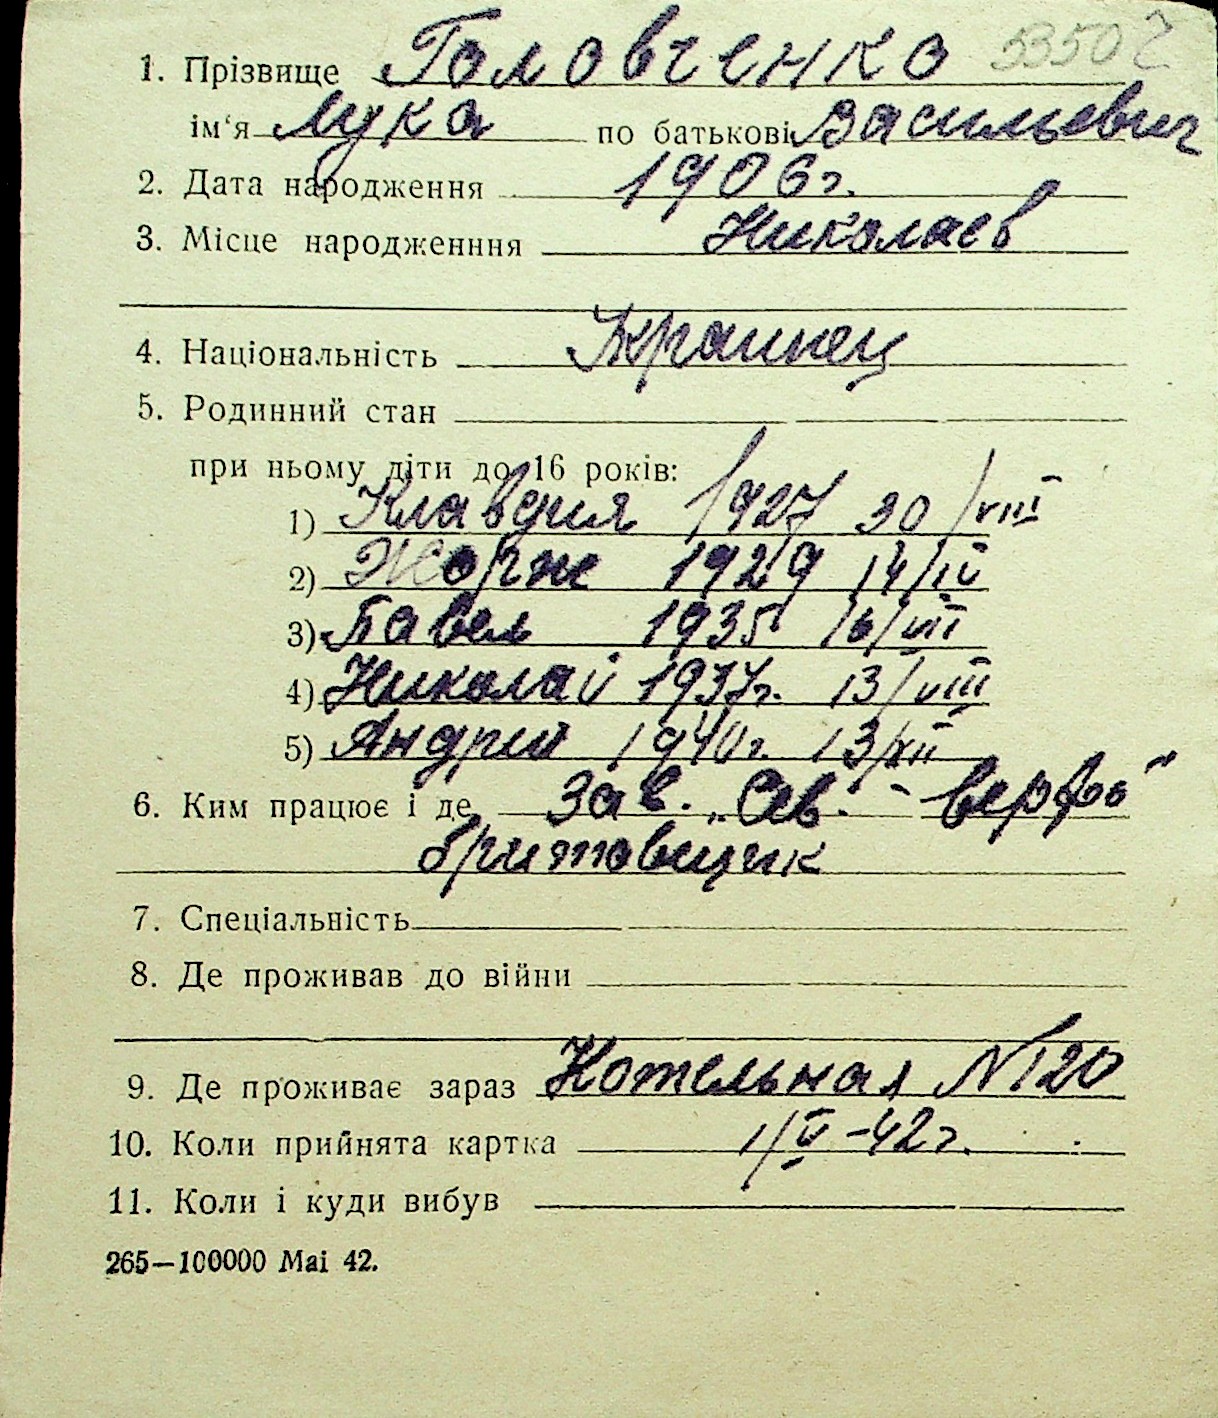 1. Прізвище Головченко 5350
ім'я Лука по батькові Васильевич
2. Дата народження 1906г.
3. Місце народженння Николаев
4. Національність Украинец
5. Родинний стан
при ньому діти до 16 років:
1) Клавдия 1927 30/VIII
2) Жорж 1929 14/IV
3) Павел 1935 16/VII
4) Николай 1937г. 13/VIII
5) Андрій 1940г. 13/XII
6. Ким працює і де Зав. „Сев. - верфь"
бритовщик
7. Спеціальність
8. Де проживав до війни
9. Де проживає зараз Котельная N120
10. Коли прийнята картка 1/V-42г.
11. Коли і куди вибув
265—100000 Mai 42.